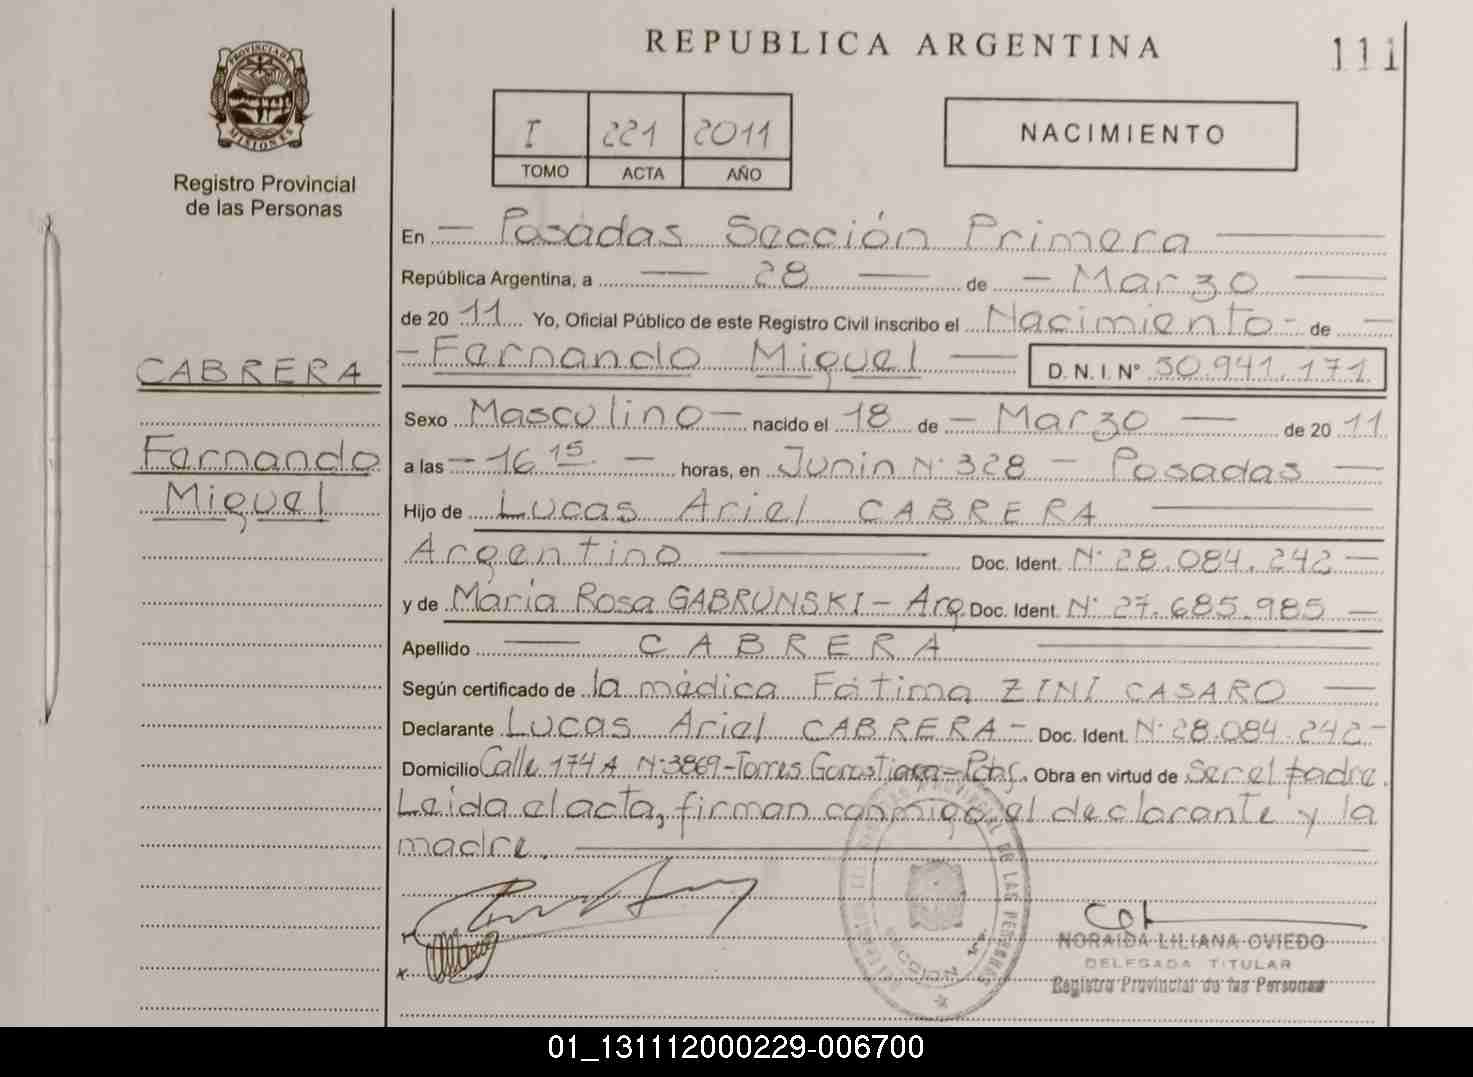 REPUBLICA ARGENTINA
111
PROVINCIA DE MISIONES
Registro Provincial
de las Personas
I 221 2011
TOMO ACTA AÑO
NACIMIENTO
En - Posadas Sección Primera
República Argentina, a 28 de - Marzo
de 20 11 Yo, Oficial Público de este Registro Civil inscribo el Nacimiento - de -
- Fernando Miguel D. N. I. Nº 50.941.171
CABRERA
Fernando
Miguel
Sexo Masculino - nacido el 18 de - Marzo - de 20 11
a las - 16 15 - horas, en Junin Nº 328 - Posadas -
Hijo de Lucas Ariel CABRERA
Argentino Doc. Ident. Nº 28.084.242 -
y de María Rosa GABRUNSKI - Arg Doc. Ident. Nº 27.685.985 -
Apellido CABRERA
Según certificado de la médica Fátima ZINI CASARO -
Declarante Lucas Ariel CABRERA - Doc. Ident. Nº 28.084.242 -
Domicilio Calle 174 A Nº 3869 - Torres Gorostiaga - Pdas. Obra en virtud de Ser el padre.
Leida el acta, firman conmigo el declarante y la
madre.
NORAIDA LILIANA OVIEDO
DELEGADA TITULAR
Registro Provincial de las Personas
01_131112000229-006700